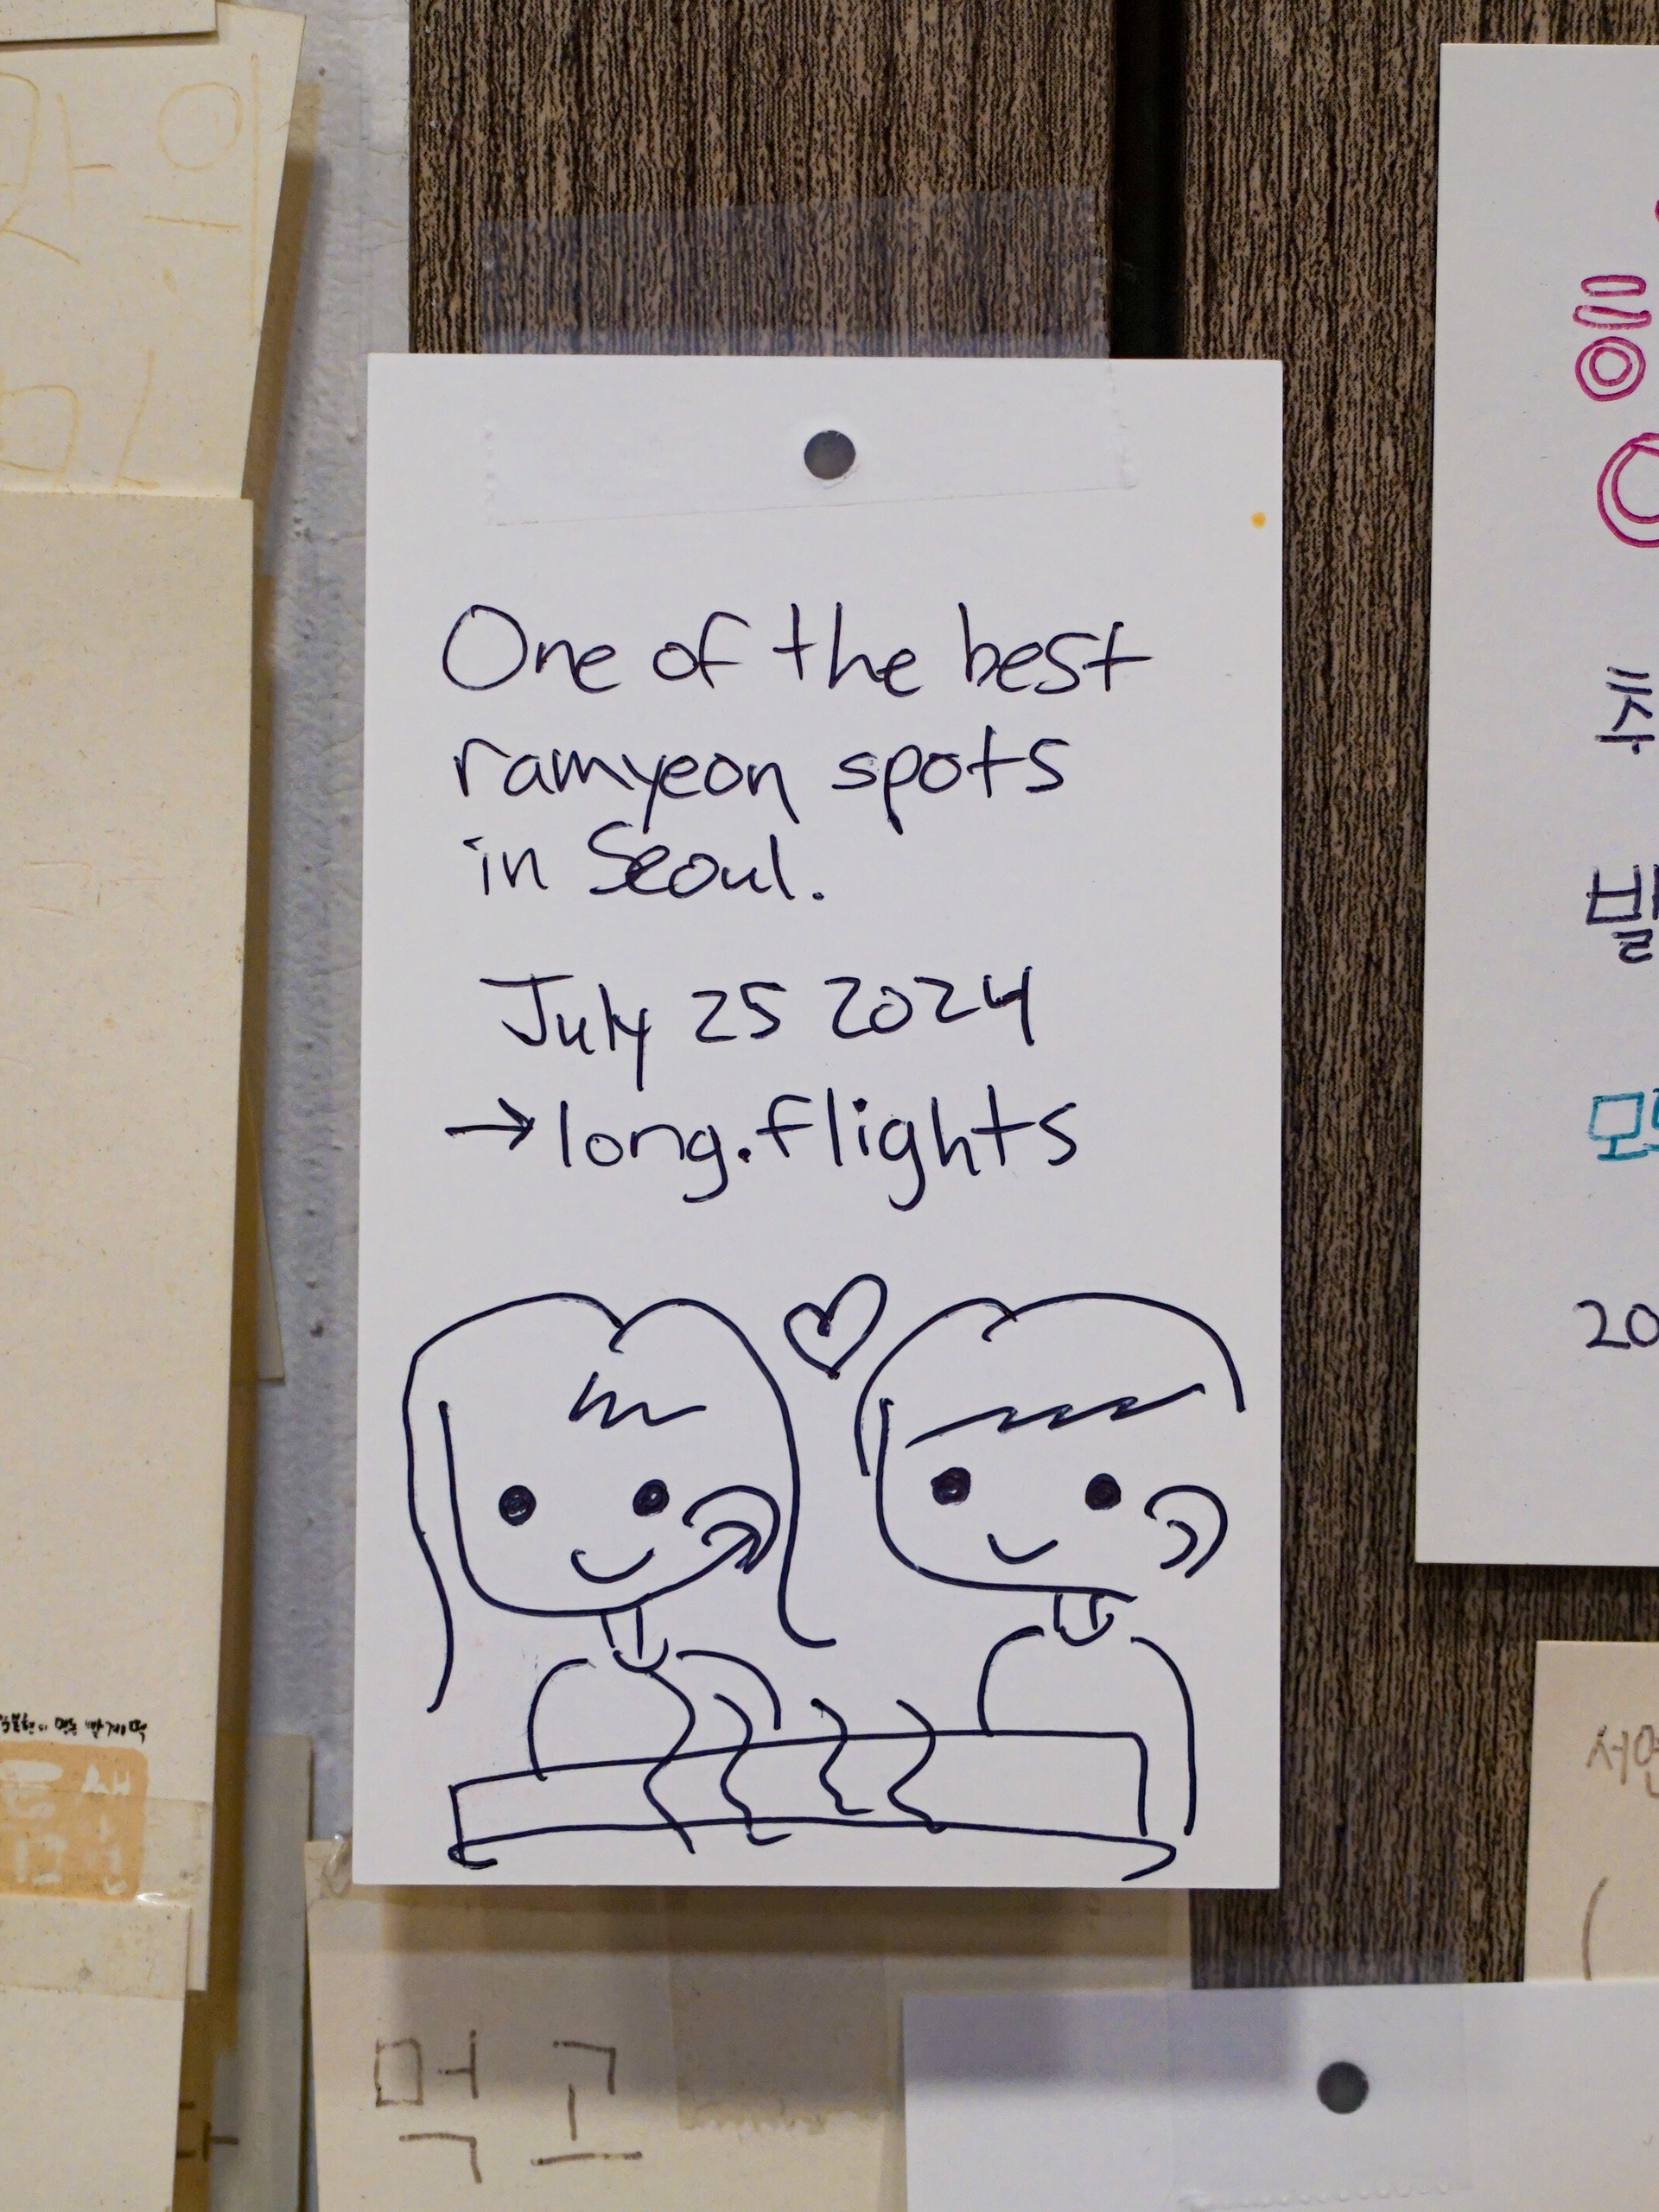 One of the best
ramyeon spots
in Seoul.
July 25 2024
→long.flights
먹고
20